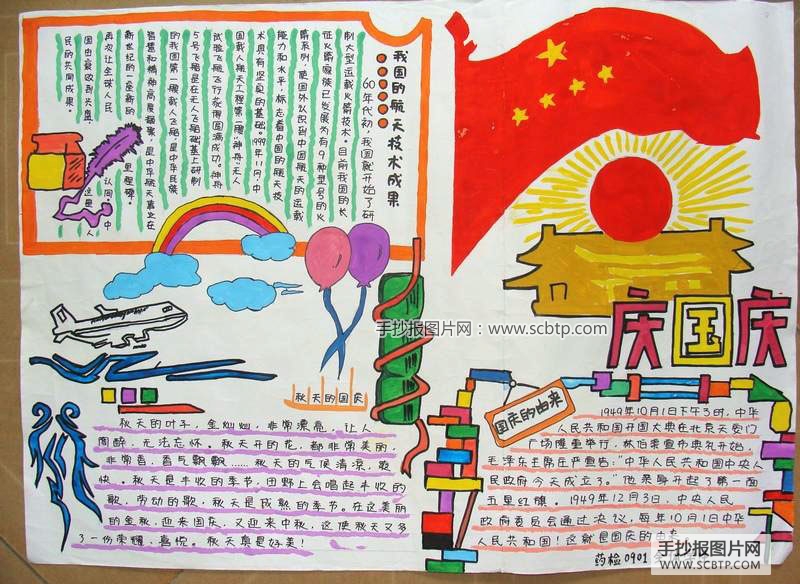 我国的航天技术成果
60年代初,我国就开始了研
制大型运载火箭技术。目前我国的长
征火箭家族已发展为有9种型号的火
箭系列,使国外认识到中国航天的运载
能力和水平,标志着中国的航天技
术具有坚真的基础。1999年11月,中
国载人航天工程第一艘"神舟"无人
试验飞船飞行获得圆满成功。神舟
5号飞船是在无人飞船基础上研制
的我国第一艘载人飞船,是中华民族
智慧和精神高度凝聚,是中华航天事业在
新世纪的一座新的 里程碑。
再次让全球人 认同。中
国由衰败到兴盛, 这是 人
民的共同成果。
庆国庆
手抄报图片网:www.scbtp.com
秋天的国庆
秋天的叶子,金灿灿,非常漂亮,让人
陶醉,无法忘怀。秋天开的花,都非常美丽,
非常香,香气飘飘……秋天的气候清凉,爽
快。秋天是丰收的季节,田野上会唱起丰收的
歌,劳动的歌,秋天是成熟的季节。在这美丽
的金秋,迎来国庆,又迎来中秋,这使秋天又多
了一份荣耀,喜悦。秋天真是好美!
国庆的由来
1949年10月1日下午3时,中华
人民共和国开国大典在北京天安门
广场隆重举行,林伯渠宣布典礼开始,
毛泽东主席庄严宣告:"中华人民共和国中央人
民政府今天成立了。"他亲手升起了第一面
五星红旗。1949年12月3日,中央人民
政府委员会通过决议,每年10月1日中华
人民共和国!这就是国庆的由来
药检0901
手抄报图片网
www.scbtp.com